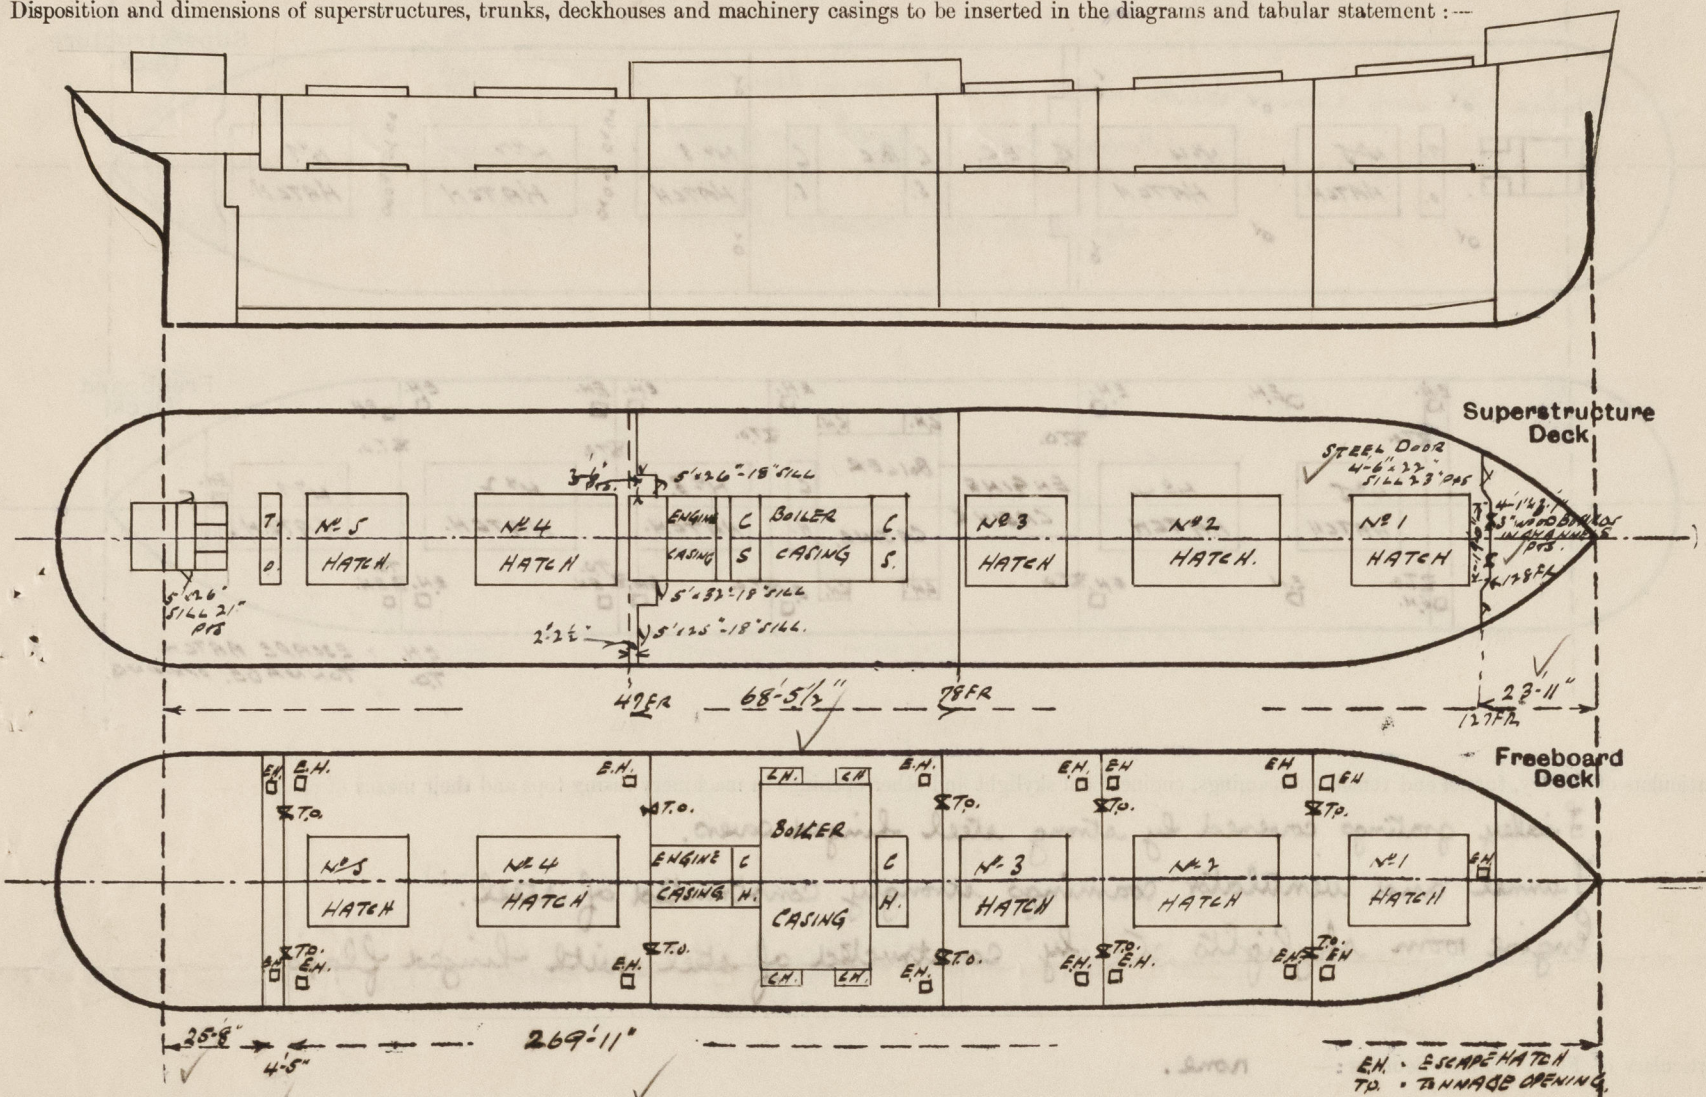 Disposition and dimensions of superstructures, trunks, deckhouses and machinery casings to be inserted in the diagrams and tabular statement :—
Superstructure
Deck
STEEL DOOR
4'-6"x22"
SILL 23" P&S
5'x26"-18" SILL
P&S.
T.
O.
No 5
HATCH
No 4
HATCH
ENGINE
CASING
C
S
BOILER
CASING
C
S.
No 3
HATCH
No 2
HATCH.
No 1
HATCH
3" WOOD BOARDS
IN CHANNELS
P&S.
128 FR
5'x26"
SILL 21"
P&S
5'x32"-18" SILL
5'x25"-18" SILL.
2'-2½"
47 FR
68'-5½"
78 FR
127 FR
23'-11"
Freeboard
Deck
E.H.
E.H.
E.H.
C.H.
C.H
E.H.
E.H.
EH
EH
EH
T.O.
T.O.
T.O.
T.O.
T.O.
No 5
HATCH
No 4
HATCH
ENGINE
CASING
C
H.
BOILER
CASING
C
H.
No 3
HATCH
No 2
HATCH
No 1
HATCH
EH
T.O.
T.O.
T.O.
T.O.
T.O.
E.H.
E.H.
E.H.
C.H.
C.H.
E.H.
E.H.
E.H.
E.H.
EH
25'-8"
4'-5"
269'-11"
E.H. · ESCAPE HATCH
T.O. · TONNAGE OPENING.
none.